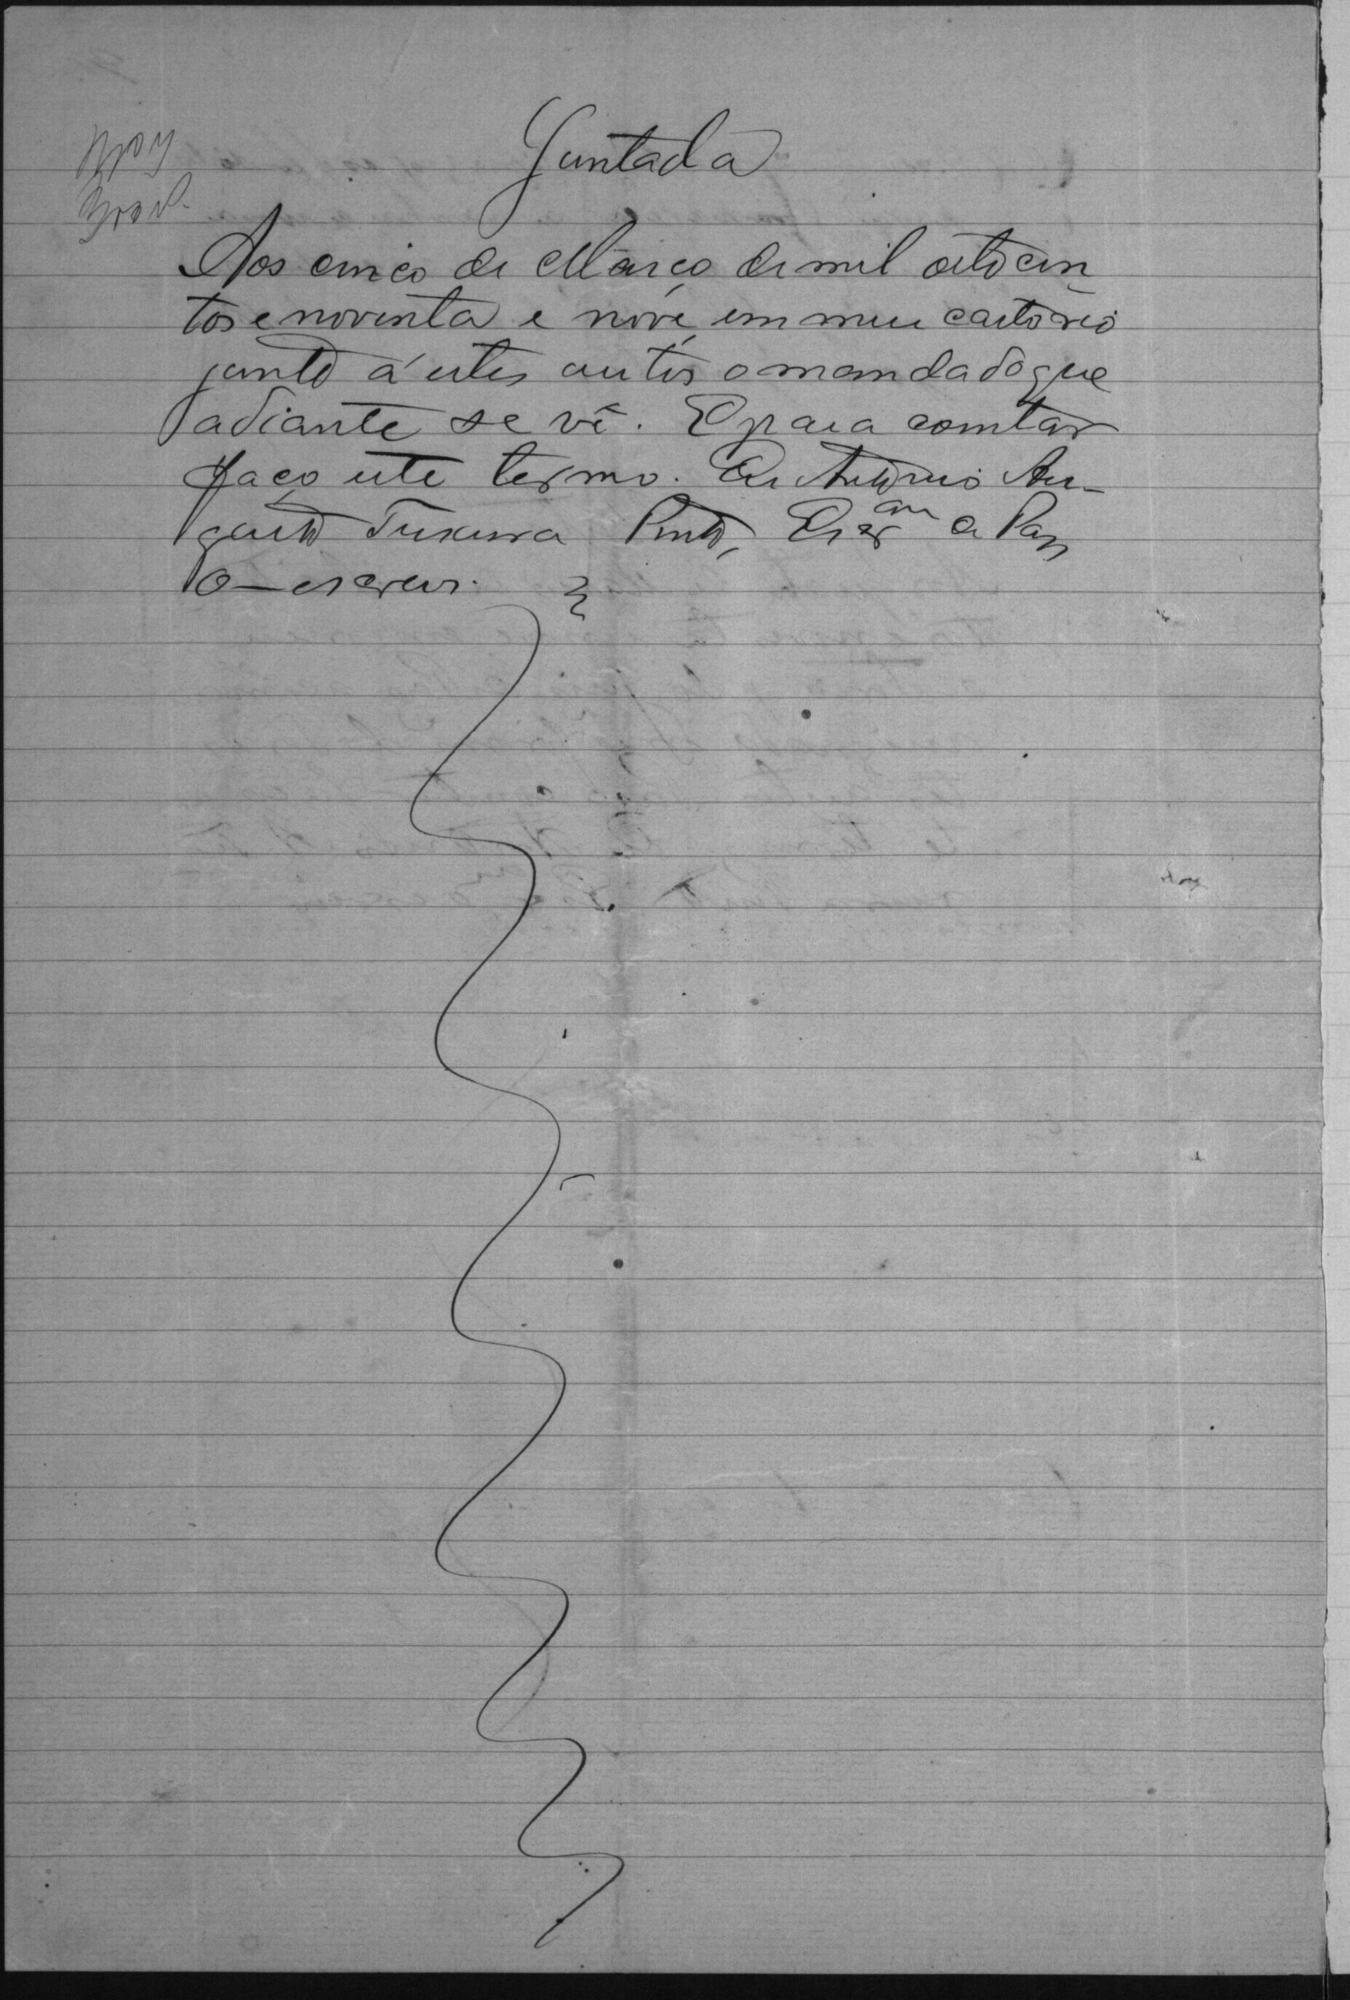 Juntada
Aos cinco de Março de mil oitocen
tos e noventa e nove em meu cartorio
junto á estes autos o mandado que
adiante se vê. E para constar
faço este termo. Eu Antonio Au-
gusto Teixeira Pinto, Escram de Paz
o escrevi.